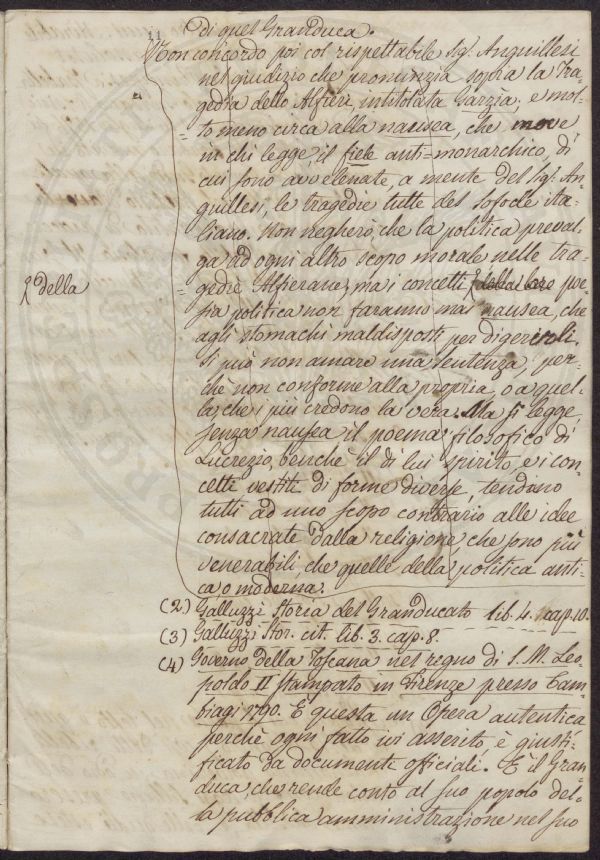 11
di quel Granduca.
Non concordo poi col rispettabile Sig.r Anguillesi
nel giudizio che pronunzia sopra la Tra-
gedia dello Alfieri, intitolata Garzia, e mol-
to meno circa alla nausea, che move
in chi legge, il fiele anti-monarchico, di
cui sono avvelenate, a mente del Sig.r An-
guillesi, le tragedie tutte del Sofocle ita-
liano. Non negherò, che la politica preval-
ga ad ogni altro scopo morale nelle tra-
gedie Alfierane, ma i concetti della loro poe-
della
sia politica non faranno mai nausea, che
agli stomachi maldisposti per digerirli.
Si può non amare una sentenza, per-
chè non conforme alla propria, o a quel-
la che i più credono la vera. Ma si legge
senza nausea il poema filosofico di
Lucrezio, benchè il di lui spirito, e i con-
cetti vestiti di forme diverse, tendono
tutti ad uno scopo contrario alle idee
consacrate dalla religione, che sono più
venerabili, che quelle della politica anti-
ca o moderna.
(2) Galluzzi Storia del Granducato lib. 4. cap. 10.
(3) Galluzzi Stor. cit. lib. 3. cap. 8.
(4) Governo della Toscana nel regno di S. M. Leo-
poldo II stampato in Firenze presso Cam-
biagi 1790. È questa un Opera autentica
perchè ogni fatto ivi asserito, è giusti-
ficato da documenti officiali. È il Gran
duca, che rende conto al suo popolo del-
la pubblica amministrazione nel suo